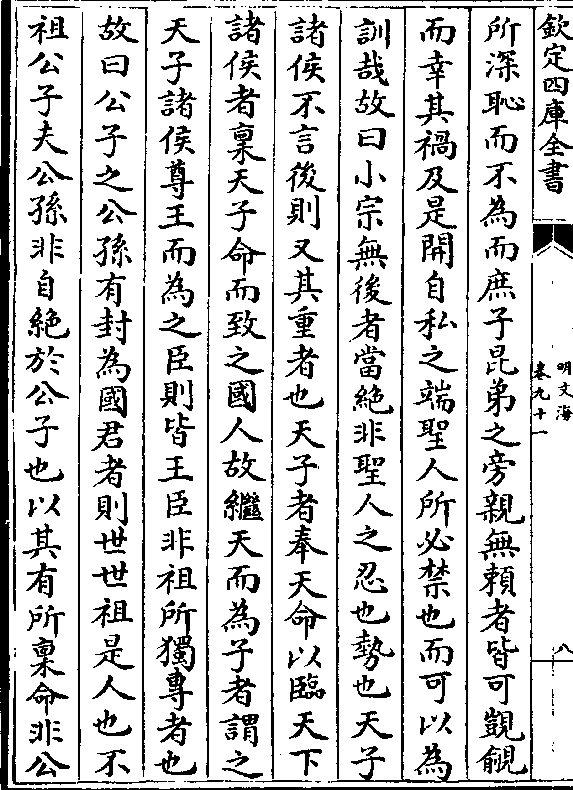 欽定四庫全書
明文海
卷九十一
八
所深恥而不為而庶子昆弟之旁親無頼者皆可覬覦
而幸其禍及是開自私之端聖人所必禁也而可以為
訓哉故曰小宗無後者當絶非聖人之忍也勢也天子
諸侯不言後則又其重者也天子者奉天命以臨天下
諸侯者稟天子命而致之國人故繼天而為子者謂之
天子諸侯尊王而為之臣則皆王臣非祖所獨專者也
故曰公子之公孫有封為國君者則世世祖是人也不
祖公子夫公孫非自絶於公子也以其有所稟命非公